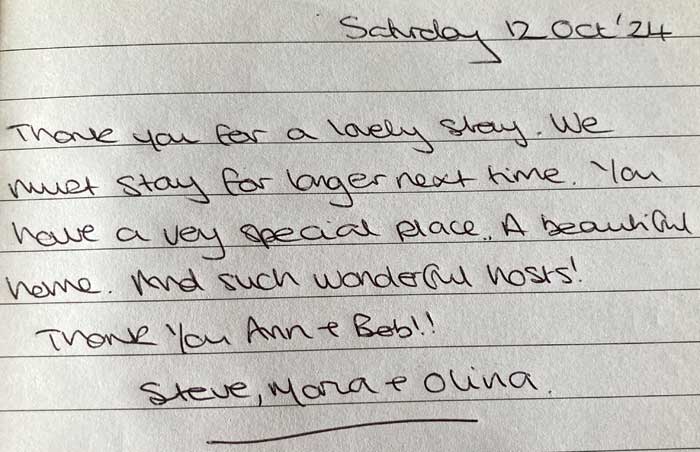 Saturday 12 Oct '24
Thank you for a lovely stay. We
must stay for longer next time. You
have a very special place.. A beautiful
home. And such wonderful hosts!
Thank You Ann + Bob!!
Steve, Mara + Olina.